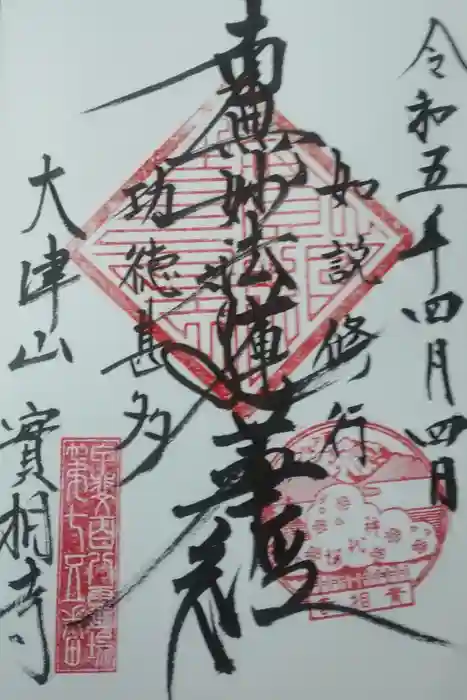 令和五年四月四日
如説修行
南無妙法蓮華経
功徳甚多
大津山
實相寺
甲斐百八霊場